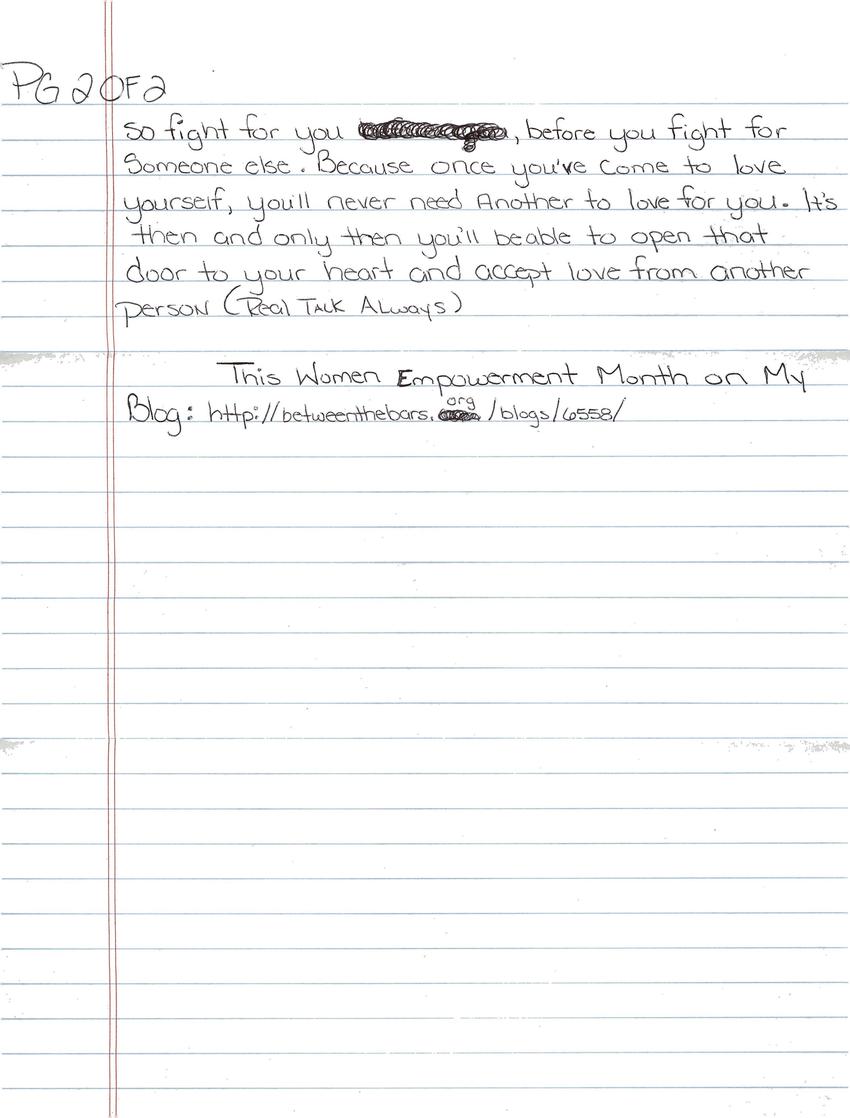 PG 2 OF 2
so fight for you , before you fight for
Someone else. Because once you've come to love
yourself, you'll never need Another to love for you. It's
then and only then you'll beable to open that
door to your heart and accept love from another
person (Real Talk Always)
This Women Empowerment Month on My
Blog: http://betweenthebars.org/blogs/6558/